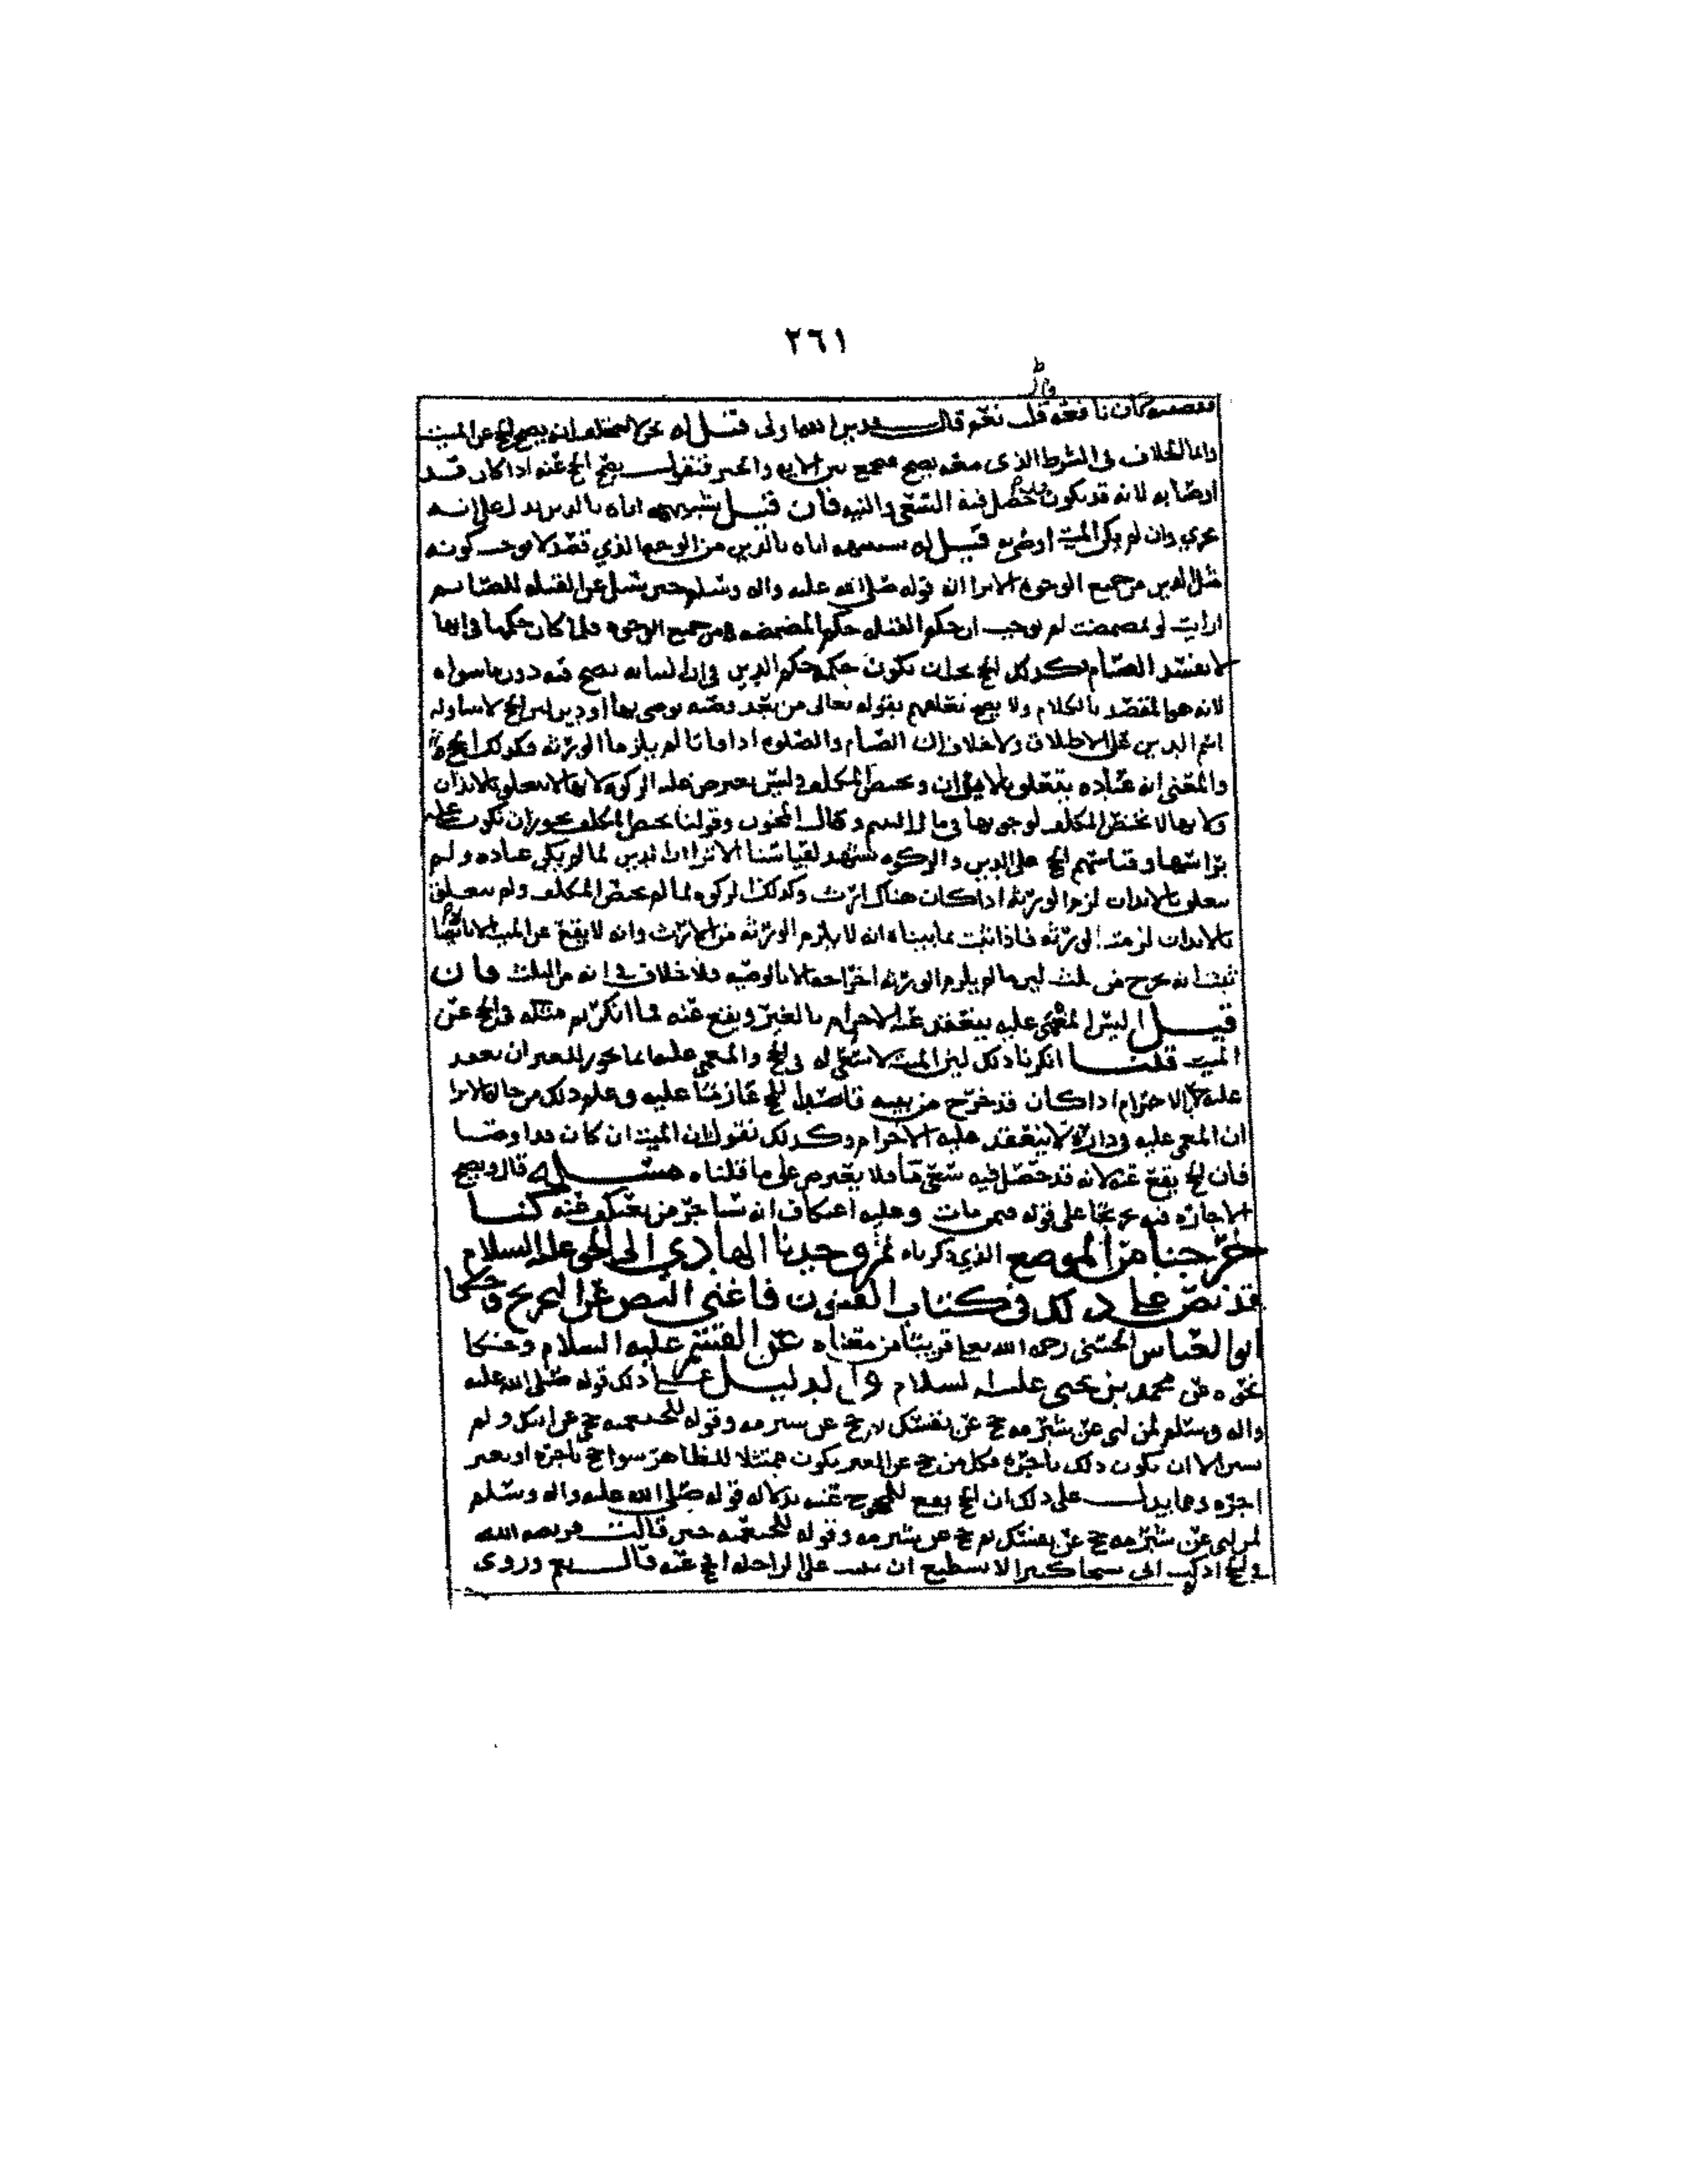 ٢٦١
فقضيته كان نافعه قلت نعم قال فدين الله اولى قيل له نحن لا نختلف انه يصح الحج عن الميت
وانما الخلاف في الشرط الذي معه يصح فنجمع بين الايه والخبر فنقول يصح الحج عنه اذا كان قد
اوصا به لانه قد يكون حصل فيه السعي والنيه فان قيل تشبيهه اياه بالدين يدل على انه
يجزي وان لم يكن الميت اوصى به قيل له تشبيهه اياه بالدين من الوجه الذي قصد لا يوجب كونه
مثل الدين من جميع الوجوه الا ترا ان قوله صلى الله عليه واله وسلم حين سئل عن القبله للصائم
ارايت لو تمضمضت لم يوجب ان حكم القبله حكم المضمضه من جميع الوجوه وانما كان حكمها في انها
لا تفسد الصيام فكذلك الحج يجب ان يكون حكمه حكم الدين في ان اتيانه يصح فيه دون ما سواه
لانه هو المقصد بالكلام ولا يصح تعلقهم بقوله تعالى من بعد وصيه يوصي بها او دين لان الحج لا يتناوله
اسم الدين على الاطلاق ولا خلاف ان الصيام والصلوه اذا فاتا لم يلزما الورثه فكذلك الحج
والمعنى انه عباده يتعلق بالابدان ويختص المكلف وليس يعترض عليه الزكوه لانها لا تتعلق بالابدان
ولانها لا تختص المكلف لوجوبها في مال اليتيم ومال المجنون وقولنا يختص المكلف يجوز ان يكون عله
براسها وقياسهم الحج على الدين والزكوه يشهد لقياسنا الا ترا ان الدين لما لم يكن عباده ولم
يتعلق بالابدان لزم الورثه اذا كان هناك ارث وكذلك الزكوه لما لم يختص المكلف ولم يتعلق
بالابدان لزمت الورثه فاذا ثبت بما بيناه انه لا يلزم الورثه من الارث وانه لا يقع عن الميت الا بالايصا
ثبت انه يخرج من الثلث لان ما لم يلزم الورثه اخراجه الا بالوصيه فلا خلاف في انه من الثلث فان
قيل اليس المغمى عليه ينعقد عنه الاحرام بالغير ويقع عنه فما انكرتم مثله في الحج عن
الميت قلنا انكرنا ذلك لان الميت لا سعي له في الحج والمغمى عليه انما يجوز للغير ان يعقد
عليه الاحرام اذا كان قد خرج من بيته قاصدا للحج عازما عليه وعلم ذلك من حاله الا ترا
ان المغمى عليه في داره لا ينعقد عليه الاحرام وكذلك نقول ان الميت ان كان قد اوصا
فان الحج يقع عنه لانه قد حصل فيه سعي ما فلا يعترض على ما قلناه مسئله قال ويصح
الاجازه فيه تخريجا على قوله فيمن مات وعليه اعتكاف انه يستاجر من يعتكف عنه كنا
خرجنا من الموضع الذي ذكرناه ثم وجدنا الهادي الى الحق عليه السلام
قد نص على ذلك في كتاب الفنون فاغنى النص عن التخريج وحكا
ابو العباس الحسني رحمه الله تعالى قريبا من معناه عن القسم عليه السلام وحكا
نحوه عن محمد بن يحيى عليه السلام والدليل على ذلك قوله صلى الله عليه
واله وسلم لمن لبى عن شبرمه حج عن نفسك ثم حج عن شبرمه وقوله للخثعميه حجي عن ابيك ولم
يشترط ان يكون ذلك باجره فكل من حج عن الغير يكون ممتثلا للظاهر سوا حج باجره او بغير
اجره ومما يدل على ذلك ان الحج يقع للمحجوج عنه بدلاله قوله صلى الله عليه واله وسلم
لمن لبى عن شبرمه حج عن نفسك ثم حج عن شبرمه وقوله للخثعميه حين قالت فريضه الله
في الحج ادركت ابي شيخا كبيرا لا يستطيع ان يثبت على الراحله افاحج عنه قال نعم وروي